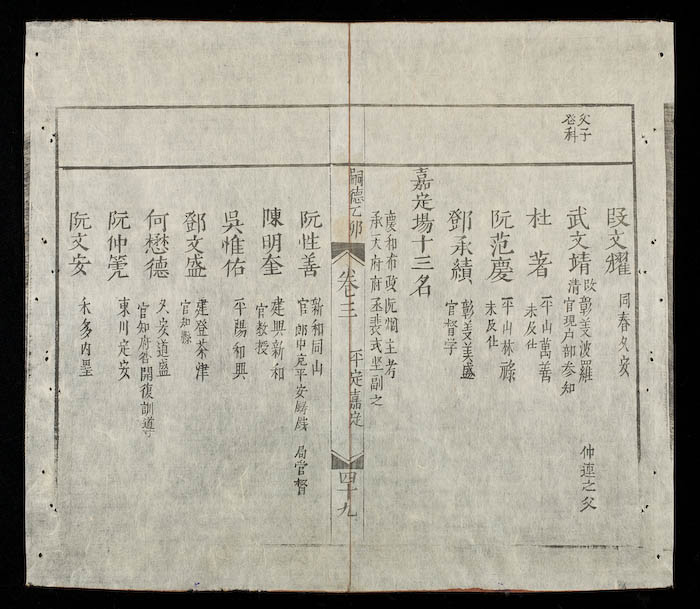 父子
登科
段文耀 同春久安
武文靖 改彰羡波羅 仲連之父
清官現户部参知
杜著 平山萬善
未及仕
阮范慶 平山林祿
未及仕
鄧永績 彰羡美盛
官督学
嘉定場十三名
慶和布政阮 主考
承天府府丞裴式坚副之
嗣德乙卯 卷三 平定嘉定 四十九
阮性善 新和同山
官郎中克平安鑄錢局官督
陳明奎 建興新和
官教授
吳惟佑 平陽和興
鄧文盛 建登茶津
官知縣
何懋德 久安道盛
官知府咎開復訓導
阮仲篼 東川定安
阮文安 禾多内墨